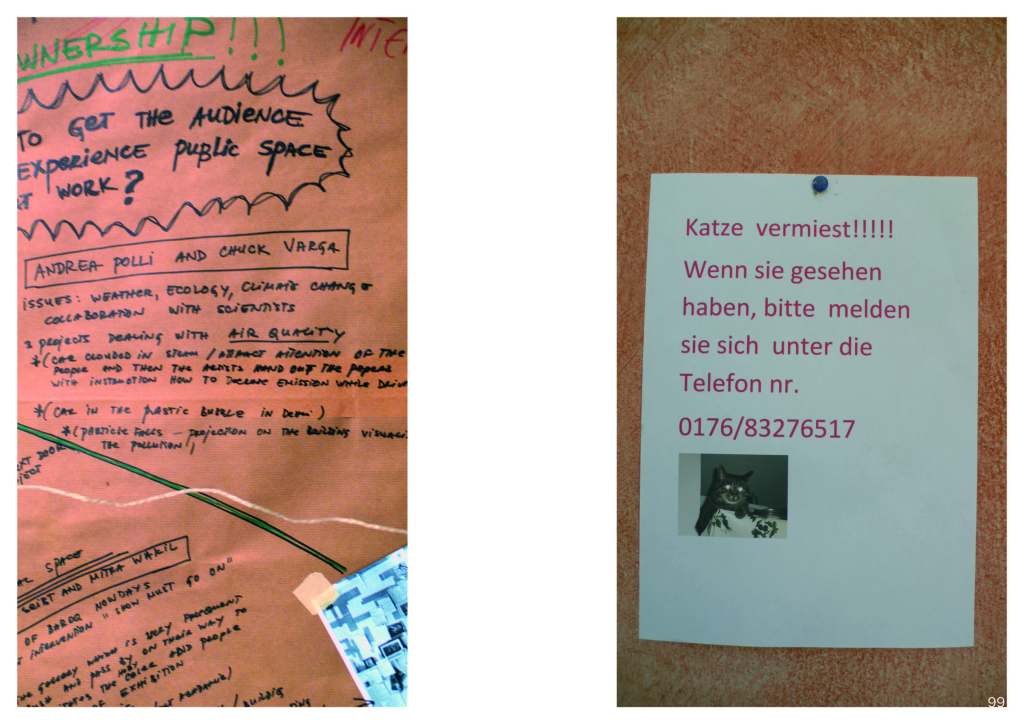 WNERSHIP!!!
INTE
TO GET THE AUDIENCE
EXPERIENCE PUBLIC SPACE
AT WORK?
ANDREA POLLI AND CHUCK VARGA
ISSUES: WEATHER, ECOLOGY, CLIMATE CHANGE
COLLABORATON WITH SCIENTISTS
3 PROJECTS DEALING WITH AIR QUALITY
*(CAR CLOUDED IN STEAM / ATTRACT ATTENTION OF THE
PEOPLE AND THEN THE ARTISTS HAND OUT THE PAPERS
WITH INSTRUCTION HOW TO DECREASE EMISSION WHILE DRIVI
*(CAR IN THE PLASTIC BUBBLE IN DELHI)
*(PARTICLE FALLS – PROJECTION ON THE BUILDING VISUALI
THE POLLUTION)
EXT DOOR
JECT
SPACE
GEIST AND MITRA WAKIL
OF BAROQ NOWDAYS
INTERVENTION "SHOW MUST GO ON"
GALLERY WHICH IS VERY
AND PASS BY ON THEIR WAY TO
THE COLOR AND PEOPLE
OF EXHIBITION
/ BUILDIG
Katze vermiest!!!!!
Wenn sie gesehen
haben, bitte melden
sie sich unter die
Telefon nr.
0176/83276517
99